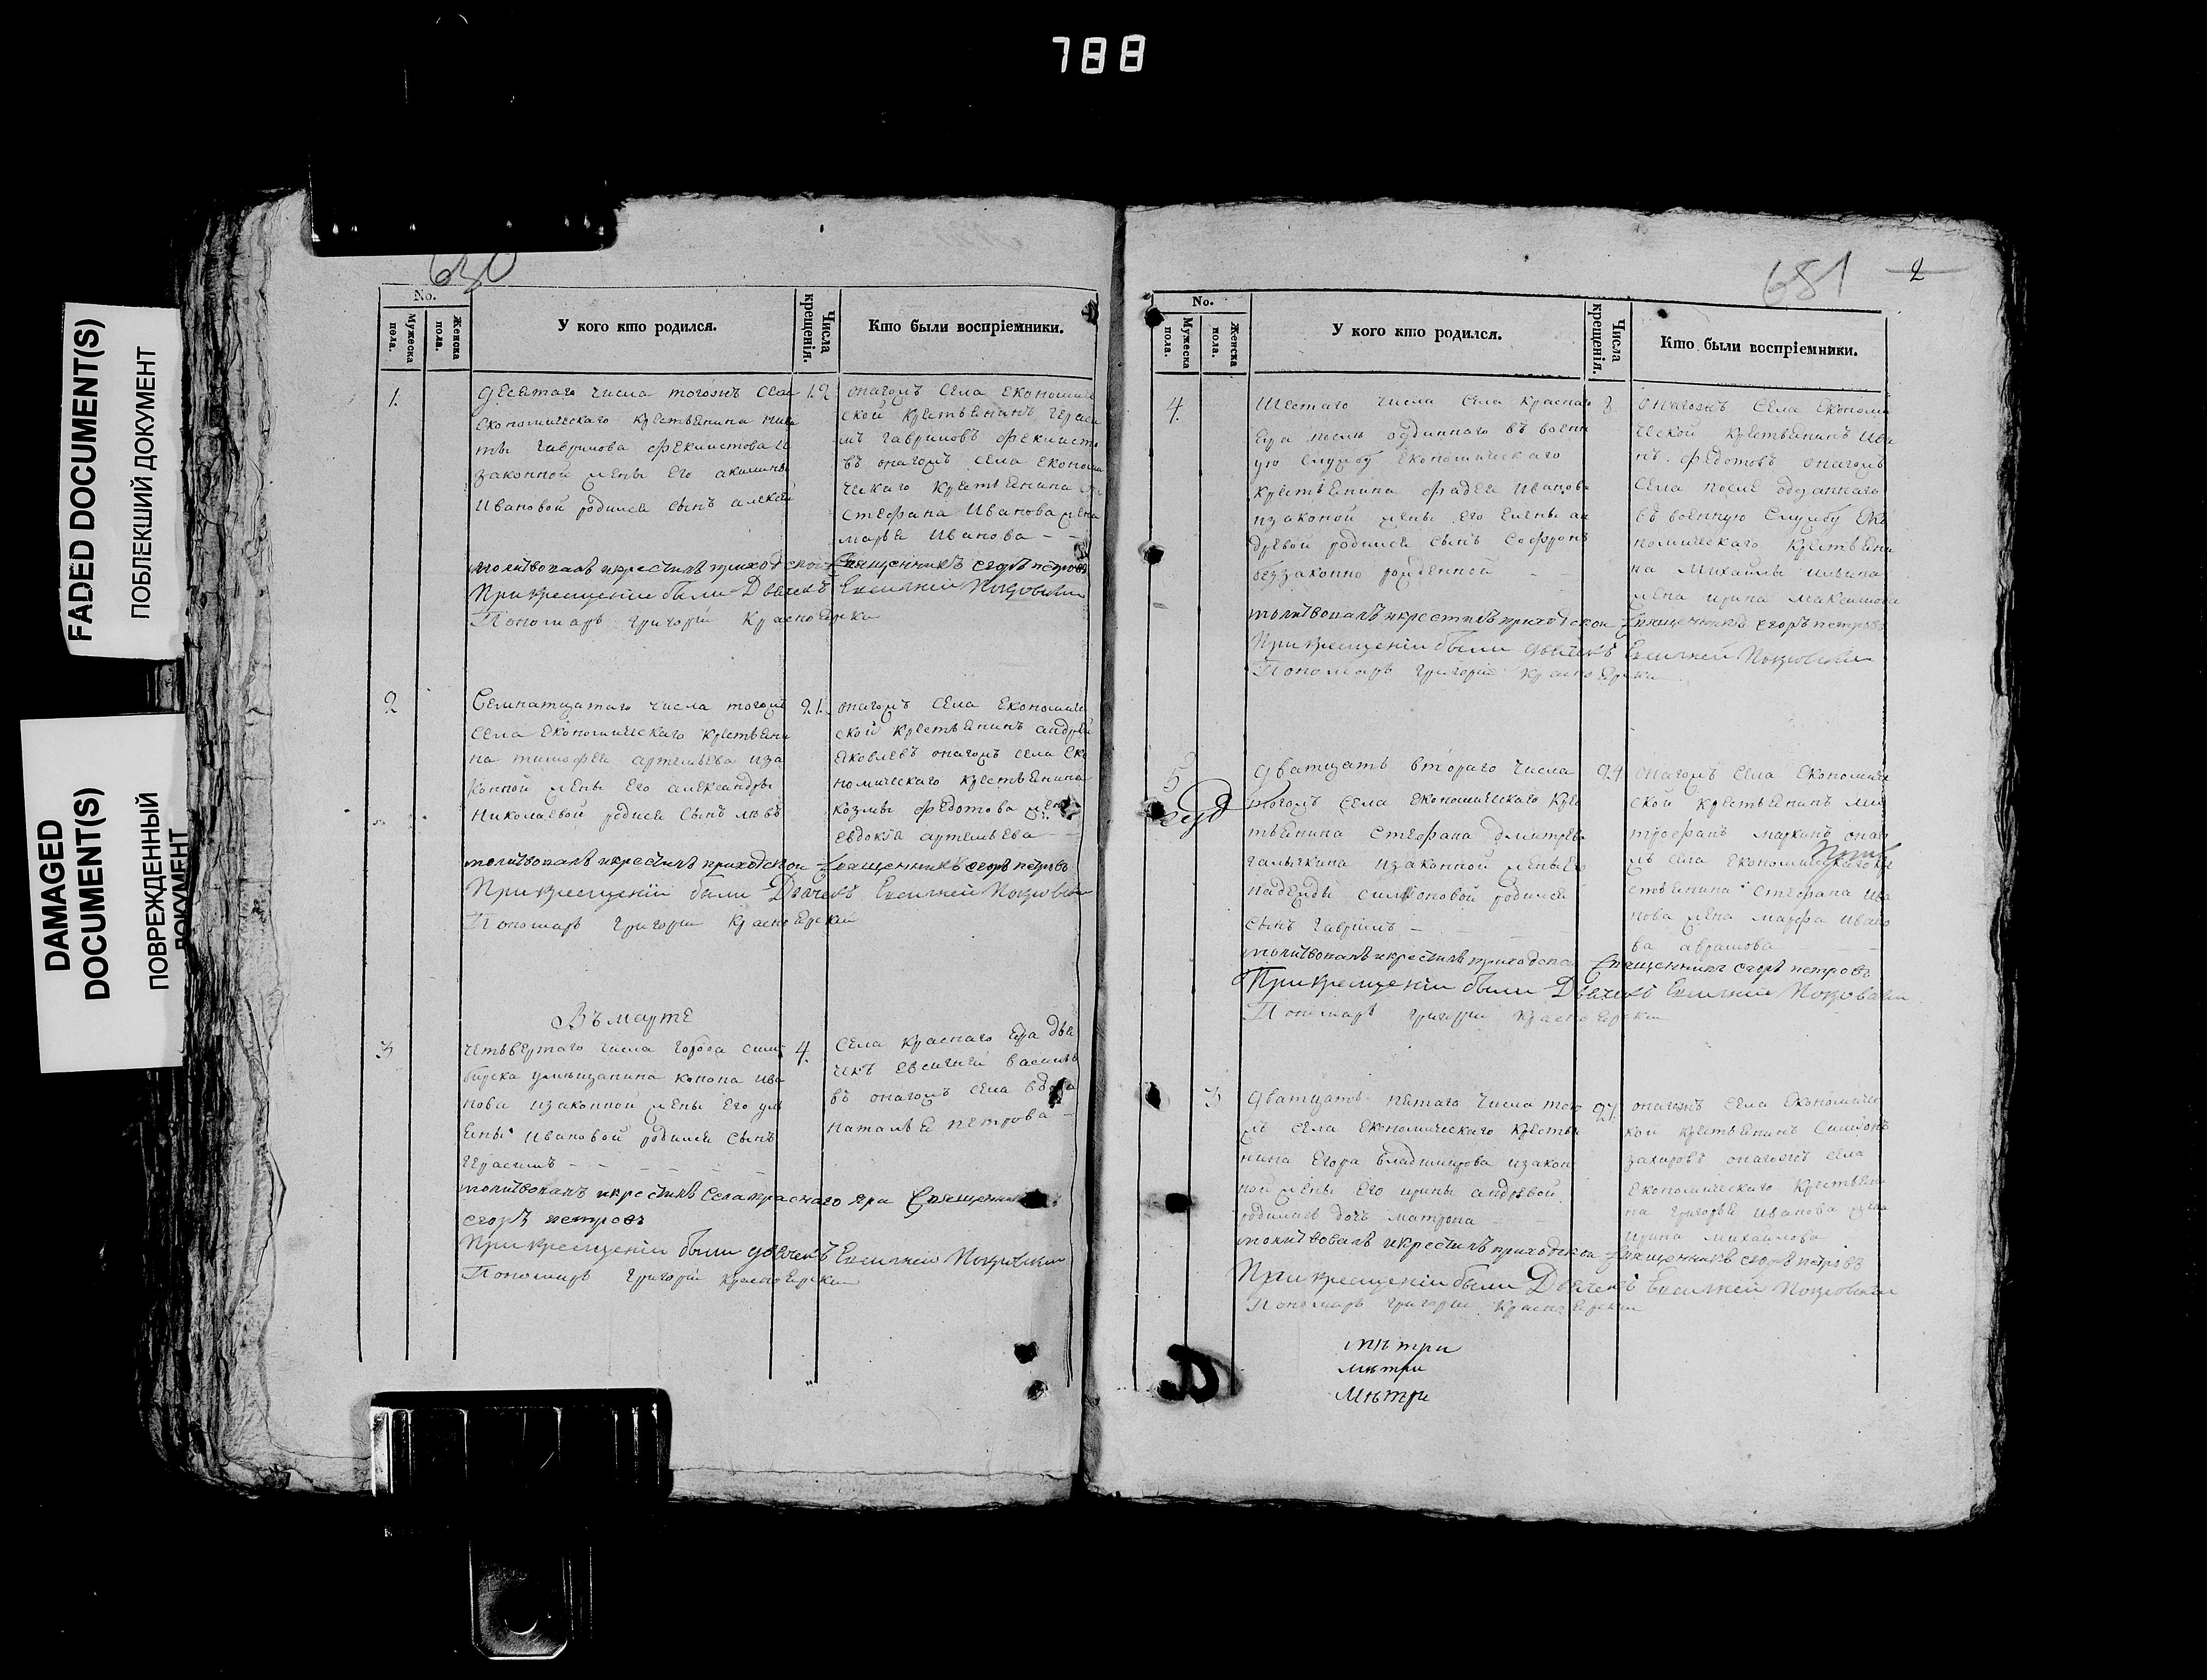 788
FADED DOCUMENT(S)
ПОБЛЕКШИЙ ДОКУМЕНТ
DAMAGED
DOCUMENT(S)
ПОВРЕЖДЕННЫЙ
ДОКУМЕНТ
630
No.
Мужеска пола.
Женска пола.
У кого кто родился.
Числа крещенія.
Кто были воспріемники.
1.
десятаго числа тогожъ села
економическаго крестьянина
Гаврилова Феклистова и
законной жены его акилины
Ивановой родился сынъ алексей
12
онагожъ села економиче
ской крестьянинъ Гераси
мъ Гавриловъ Феклисто
въ онагожъ села економи
ческаго крестьянина
Стефана Иванова жена
марья Иванова
молитвовалъ и крестилъ приходской Священникъ егоръ петровъ
При крещеніи были Дьячекъ Евсигней Покровской
Пономарь григорій Красноярской
2
Семнатцатаго числа тогожъ
села економическаго крестьяни
на тимофея артемьева иза
конной жены его александры
Николаевой родися сынъ левъ
21.
онагожъ села економиче
ской крестьянинъ андрей
яковлевъ онагожъ села еко
номическаго крестьянина
козмы Федотова жена
евдокія артемьева
молитвовалъ и крестилъ приходской Священникъ егоръ петровъ
При крещеніи были Дьячекъ Евсигней Покровской
Пономарь григорій Красноярской
Въ марте
3
четвертаго числа города сим
бирска умещанина конона ива
нова изаконной жены его уль
яны Ивановой родился сынъ
Герасимъ
4.
Села краснаго яра дья
чекъ евсигней василье
въ онагожъ села вдова
наталья петрова
молитвовалъ и крестилъ Села краснаго яра Священникъ
егоръ петровъ
При крещеніи были дьячекъ Евсигней Покровской
Пономарь григорій Красноярской
681 2
No.
Мужеска пола.
Женска пола.
У кого кто родился.
Числа крещенія.
Кто были воспріемники.
4.
Шестаго числа села краснаго
яра послѣ одданнаго въ военн
ую службу економическаго
крестьянина фадея иванова
изаконой жены его елены ан
дреевой родился сынъ Софронъ
беззаконно рожденной
онагожъ села економи
ческой крестьянинъ ива
нъ федотовъ онагожъ
села после одданнаго
въ военную службу эко
номическаго крестьяни
на Михайлы ильина
жена ирина максимова
молитвовалъ и крестилъ приходской Священникъ егоръ петровъ
При крещеніи были дьячекъ Евсигней Покровской
Пономарь григорій Красноярской
5
дватцать втораго числа
тогожъ села економическаго кре
стьянина Стефана дмитрева
галычкина изаконной жены его
надежды симоновой родился
сынъ Гаврилъ
24
онагожъ села економиче
ской крестьянинъ ми
трофанъ маркинъ онаго
жъ села економическаго кр
стьянина Стефана ива
нова жена марфа ивано
ва аврамова
молитвовалъ и крестилъ приходской Священникъ егоръ петровъ
При крещеніи были Дьячекъ Евсигней Покровской
Пономарь григорій Красноярской
3
дватцать пятаго числа того
жъ села економическаго крестья
нина Егора владимирова изакон
ной жены его ирины андревой
родилась дочь матрона
27.
онагожъ села економиче
кой крестьянинъ Симіонъ
захаровъ онагожъ села
економическаго крестьяни
на григорья иванова жена
ирина михайлова
молитвовалъ и крестилъ приходской Священникъ егоръ петровъ
При крещеніи были Дьячекъ Евсигней Покровской
Пономарь григорій Красноярской